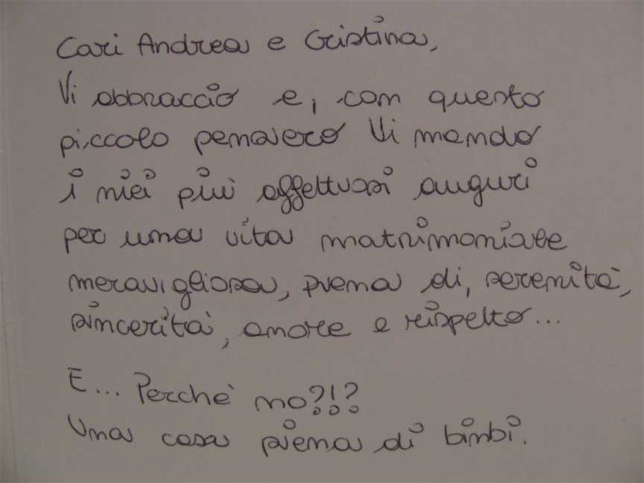 Cari Andrea e Cristina,
Vi abbraccio e, con questo
piccolo pensiero Vi mando
i miei più affettuosi auguri
per una vita matrimoniale
meravigliosa, piena di, serenità,
sincerità, amore e rispetto...
E... Perchè no?!?
Una casa piena di bimbi.